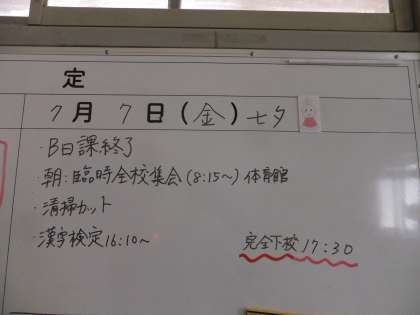 定
7月7日(金)七夕
・B日課終了
・朝:臨時全校集会(8:15〜)体育館
・清掃カット
・漢字検定16:10〜
完全下校17:30